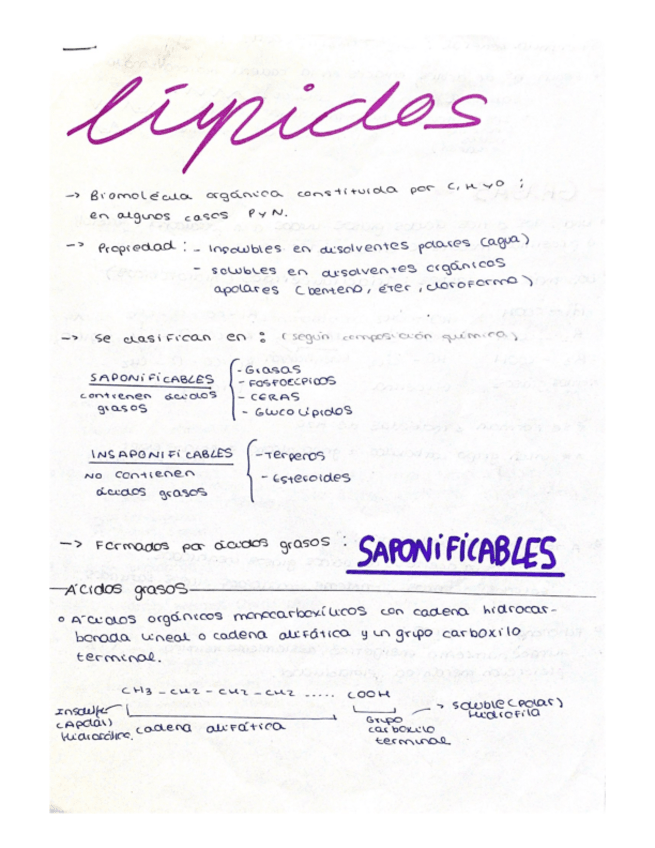 lípidos
→ Biomolécula orgánica constituida por C, H y O ;
en algunos casos P y N.
→ Propiedad : - Insolubles en disolventes polares (agua)
- solubles en disolventes orgánicos
apolares (benceno, éter, cloroformo)
→ se clasifican en : (según composición química)
SAPONIFICABLES
contienen ácidos
grasos
- Grasas
- FOSFOLÍPIDOS
- CERAS
- Glucolípidos
INSAPONIFICABLES
NO contienen
ácidos grasos
- Terpenos
- Esteroides
→ Formados por ácidos grasos : SAPONIFICABLES
Ácidos grasos
Ácidos orgánicos monocarboxílicos con cadena hidrocar-
bonada lineal o cadena alifática y un grupo carboxilo
terminal.
CH3 - CH2 - CH2 - CH2 ..... COOH
Insoluble
(Apolar)
cadena alifática
Grupo
carboxilo
terminal
→ soluble (polar)
Hidrófila